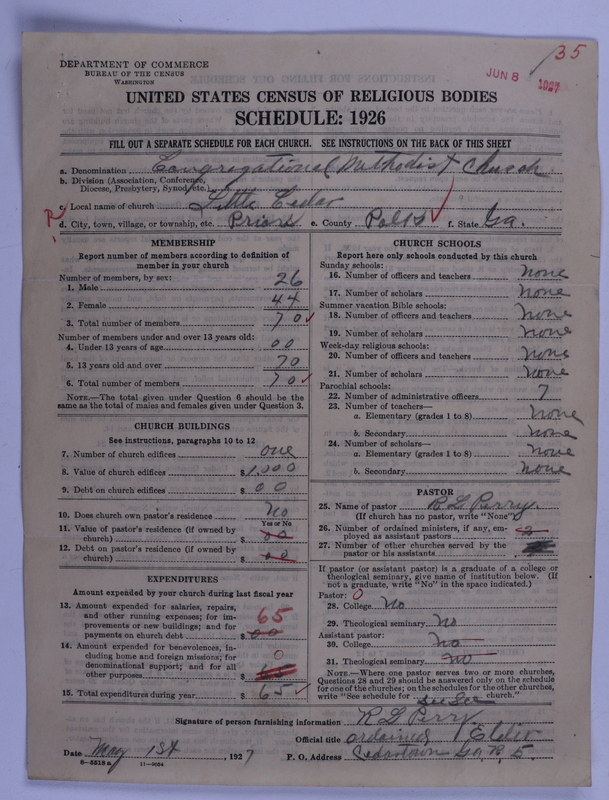 135
JUN 8 1927
DEPARTMENT OF COMMERCE
BUREAU OF THE CENSUS
WASHINGTON
UNITED STATES CENSUS OF RELIGIOUS BODIES
SCHEDULE: 1926
FILL OUT A SEPARATE SCHEDULE FOR EACH CHURCH. SEE INSTRUCTIONS ON THE BACK OF THIS SHEET
a. Denomination Congregational Methodist Church
b. Division (Association, Conference, Diocese, Presbytery, Synod, etc.)
c. Local name of church Little Cedar
d. City, town, village, or township, etc. Priors e. County Polk f. State Ga.
MEMBERSHIP
Report number of members according to definition of member in your church
Number of members, by sex:
1. Male 26
2. Female 44
3. Total number of members 70
Number of members under and over 13 years old:
4. Under 13 years of age 00
5. 13 years old and over 70
6. Total number of members 70
NOTE.—The total given under Question 6 should be the same as the total of males and females given under Question 3.
CHURCH BUILDINGS
See instructions, paragraphs 10 to 12
7. Number of church edifices one
8. Value of church edifices $1,000
9. Debt on church edifices $ 00
10. Does church own pastor's residence No
Yes or No
11. Value of pastor's residence (if owned by church) $ 00
12. Debt on pastor's residence (if owned by church) $ 00
EXPENDITURES
Amount expended by church during last fiscal year
13. Amount expended for salaries, repairs, and other running expenses; for improvements or new buildings; and for payments on church debt $ 65 00
14. Amount expended for benevolences, including home and foreign missions; for denominational support; and for all other purposes $ 0
15. Total expenditures during year $ 65
CHURCH SCHOOLS
Report here only schools conducted by this church
Sunday schools:
16. Number of officers and teachers none
17. Number of scholars none
Summer vacation Bible schools:
18. Number of officers and teachers none
19. Number of scholars none
Week-day religious schools:
20. Number of officers and teachers none
21. Number of scholars none
Parochial schools:
22. Number of administrative officers 7
23. Number of teachers—
a. Elementary (grades 1 to 8) none
b. Secondary none
24. Number of scholars—
a. Elementary (grades 1 to 8) none
b. Secondary none
PASTOR
25. Name of pastor R L Perry
(If church has no pastor, write "None")
26. Number of ordained ministers, if any, employed as assistant pastors
27. Number of other churches served by the pastor or his assistants
If pastor (or assistant pastor) is a graduate of a college or theological seminary, give name of institution below. (If not a graduate, write "No" in the space indicated.)
Pastor: 0
28. College No
29. Theological seminary No
Assistant pastor:
30. College No
31. Theological seminary No
NOTE.—Where one pastor serves two or more churches, Questions 28 and 29 should be answered only on the schedule for one of the churches; on the schedules for the other churches, write "See schedule for church."
Signature of person furnishing information R L Perry
Official title ordained Elder
Date May 1st, 1927 P. O. Address Cedartown Ga. R. 5.
8-5518a 11-9054